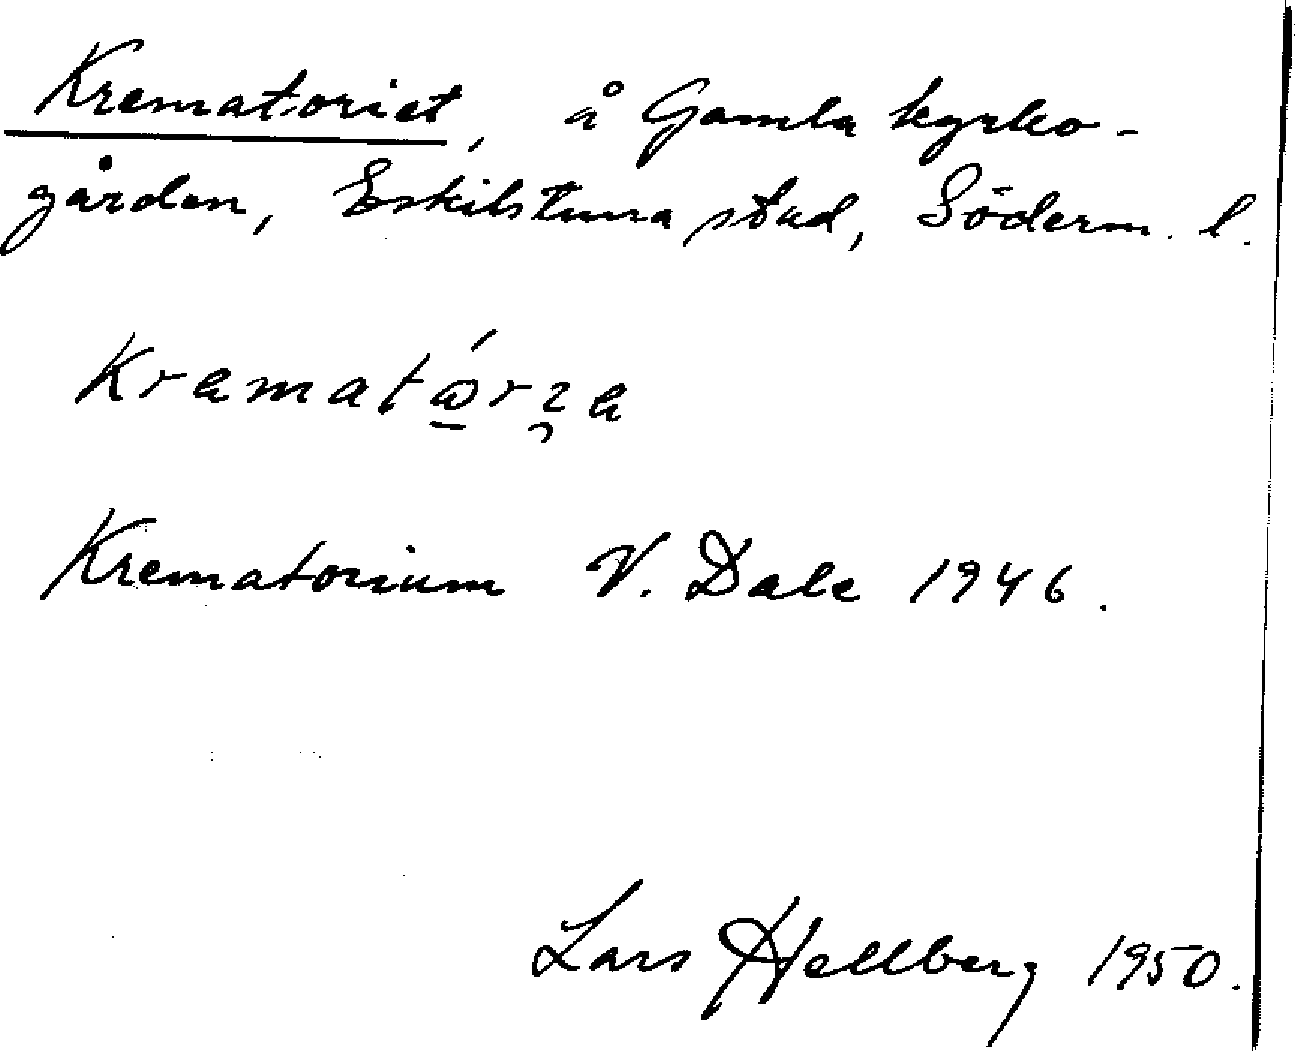 Krematoriet, å Gamla kyrko-
gården, Eskilstuna stad, Söderm. l.
Krematorium V. Dale 1946.
Lars Hellberg 1950.